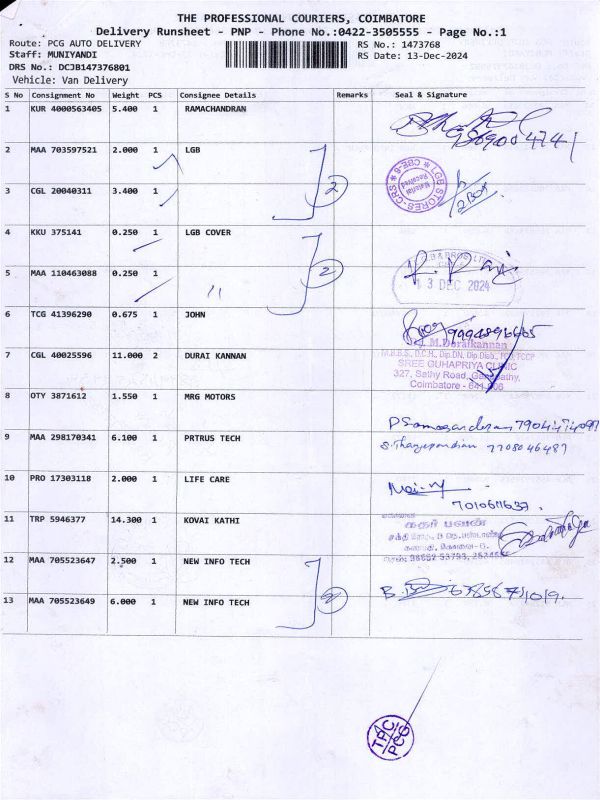 THE PROFESSIONAL COURIERS, COIMBATORE
Delivery Runsheet - PNP - Phone No.:0422-3505555 - Page No.:1
Route: PCG AUTO DELIVERY
RS No.: 1473768
Staff: MUNIYANDI
RS Date: 13-Dec-2024
DRS No.: DCJB147376801
Vehicle: Van Delivery
S No Consignment No Weight PCS Consignee Details Remarks Seal & Signature
1 KUR 4000563405 5.400 1 RAMACHANDRAN
2 MAA 703597521 2.000 1 LGB
LGB STORES-CRS CBE-6
Material Received
2 BOX
3 CGL 20040311 3.400 1
2
4 KKU 375141 0.250 1 LGB COVER
5 MAA 110463088 0.250 1 "
2
13 DEC 2024
6 TCG 41396290 0.675 1 JOHN
7 CGL 40025596 11.000 2 DURAI KANNAN
M.Doraikannan
M.B.B.S., D.C.H., Dip.DN, Dip.Diab.,
SREE GUHAPRIYA CLINIC
327, Sathy Road, Ganapathy,
Coimbatore - 641 006
8 OTY 3871612 1.550 1 MRG MOTORS
9 MAA 298170341 6.100 1 PRTRUS TECH
S.Thangapandian 7708046487
10 PRO 17303118 2.000 1 LIFE CARE
7010611637
11 TRP 5946377 14.300 1 KOVAI KATHI
12 MAA 705523647 2.500 1 NEW INFO TECH
13 MAA 705523649 6.000 1 NEW INFO TECH
2
TPC
PCG